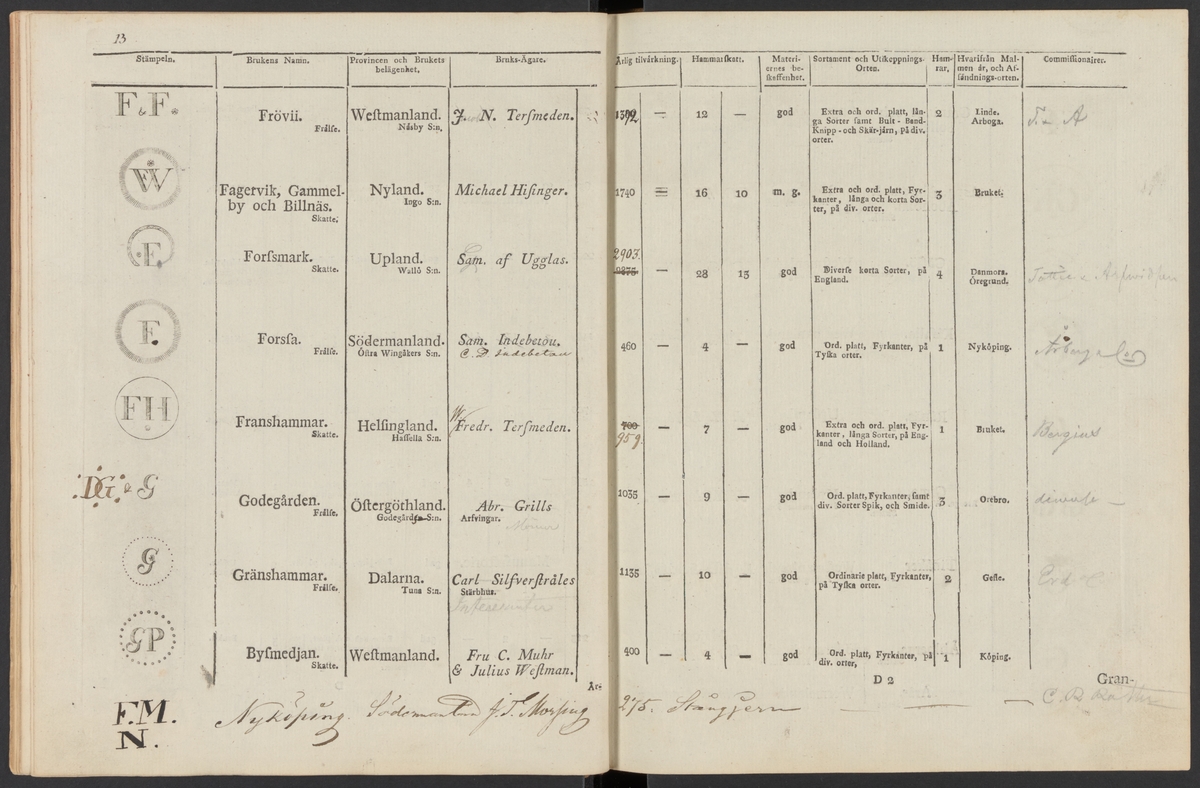 13
Stämpeln. Brukens Namn. Provincen och Brukets belägenhet. Bruks-Ägare. Årlig tilvärkning. Hammarskatt. Materiernes beskaffenhet. Sortament och Utskeppnings-Orten. Hamrar, Hvarifrån Malmen är, och Afsändnings-orten. Commissionairer.
F & F. Frövii. Weſtmanland. J. N. Terſmeden. 1500 — 12 — god Extra och ord. platt, lån- 2 Linde. F. A
Frälſe. Näsby S:n. ga Sorter ſamt Bult - Band- Arboga.
Knipp - och Skär-järn, på div.
orter.
W
Fagervik, Gammel- Nyland. Michael Hiſinger. 1740 — 16 10 m. g. Extra och ord. platt, Fyr- 3 Bruket.
by och Billnäs. Ingo S:n. kanter, långa och korta Sor-
Skatte. ter, på div. orter.
2903.
E. Forſsmark. Upland. Sam. af Ugglas. 2875 — 28 13 god Diverſe korta Sorter, på 4 Danmora.
Skatte. Wallö S:n. England. Öregrund.
F. Forſsa. Södermanland. Sam. Indebetou. 460 — 4 — god Ord. platt, Fyrkanter, på 1 Nyköping.
Frälſe. Öſtra Wingåkers S:n. C. D Indebetou Tyſka orter.
FH Franshammar. Helſingland. W Fredr. Terſmeden. 700 — 7 — god Extra och ord. platt, Fyr- 1 Bruket. Bergius
Skatte. Haſſella S:n. 959. kanter, långa Sorter, på Eng-
land och Holland.
DG & G Godegården. Öſtergöthland. Abr. Grills 1035 — 9 — god Ord. platt, Fyrkanter, ſamt 3 Örebro. diverse —
Frälſe. Godegårds S:n. Arfvingar. div. Sorter Spik, och Smide.
G Gränshammar. Dalarna. Carl Silfverſtråles 1135 — 10 — god Ordinarie platt, Fyrkanter, 2 Gefle.
Frälſe. Tuna S:n. Stärbhus. på Tyſka orter.
GP Byſmedjan. Weſtmanland. Fru C. Muhr 400 — 4 — god Ord. platt, Fyrkanter, på 1 Köping.
Skatte. & Julius Weſtman. div. orter,
År- D 2 Gran-
F.M. Nyköping. Södermanland J. T. Morsing 275. Stångjern — — —
N.